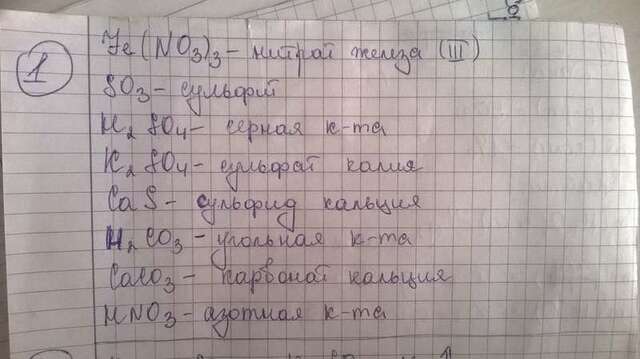 1
Fe(NO3)3 – нитрат железа (III)
SO3 – сульфит
H2SO4 – серная к-та
K2SO4 – сульфат калия
CaS – сульфид кальция
H2CO3 – угольная к-та
CaCO3 – карбонат кальция
HNO3 – азотная к-та